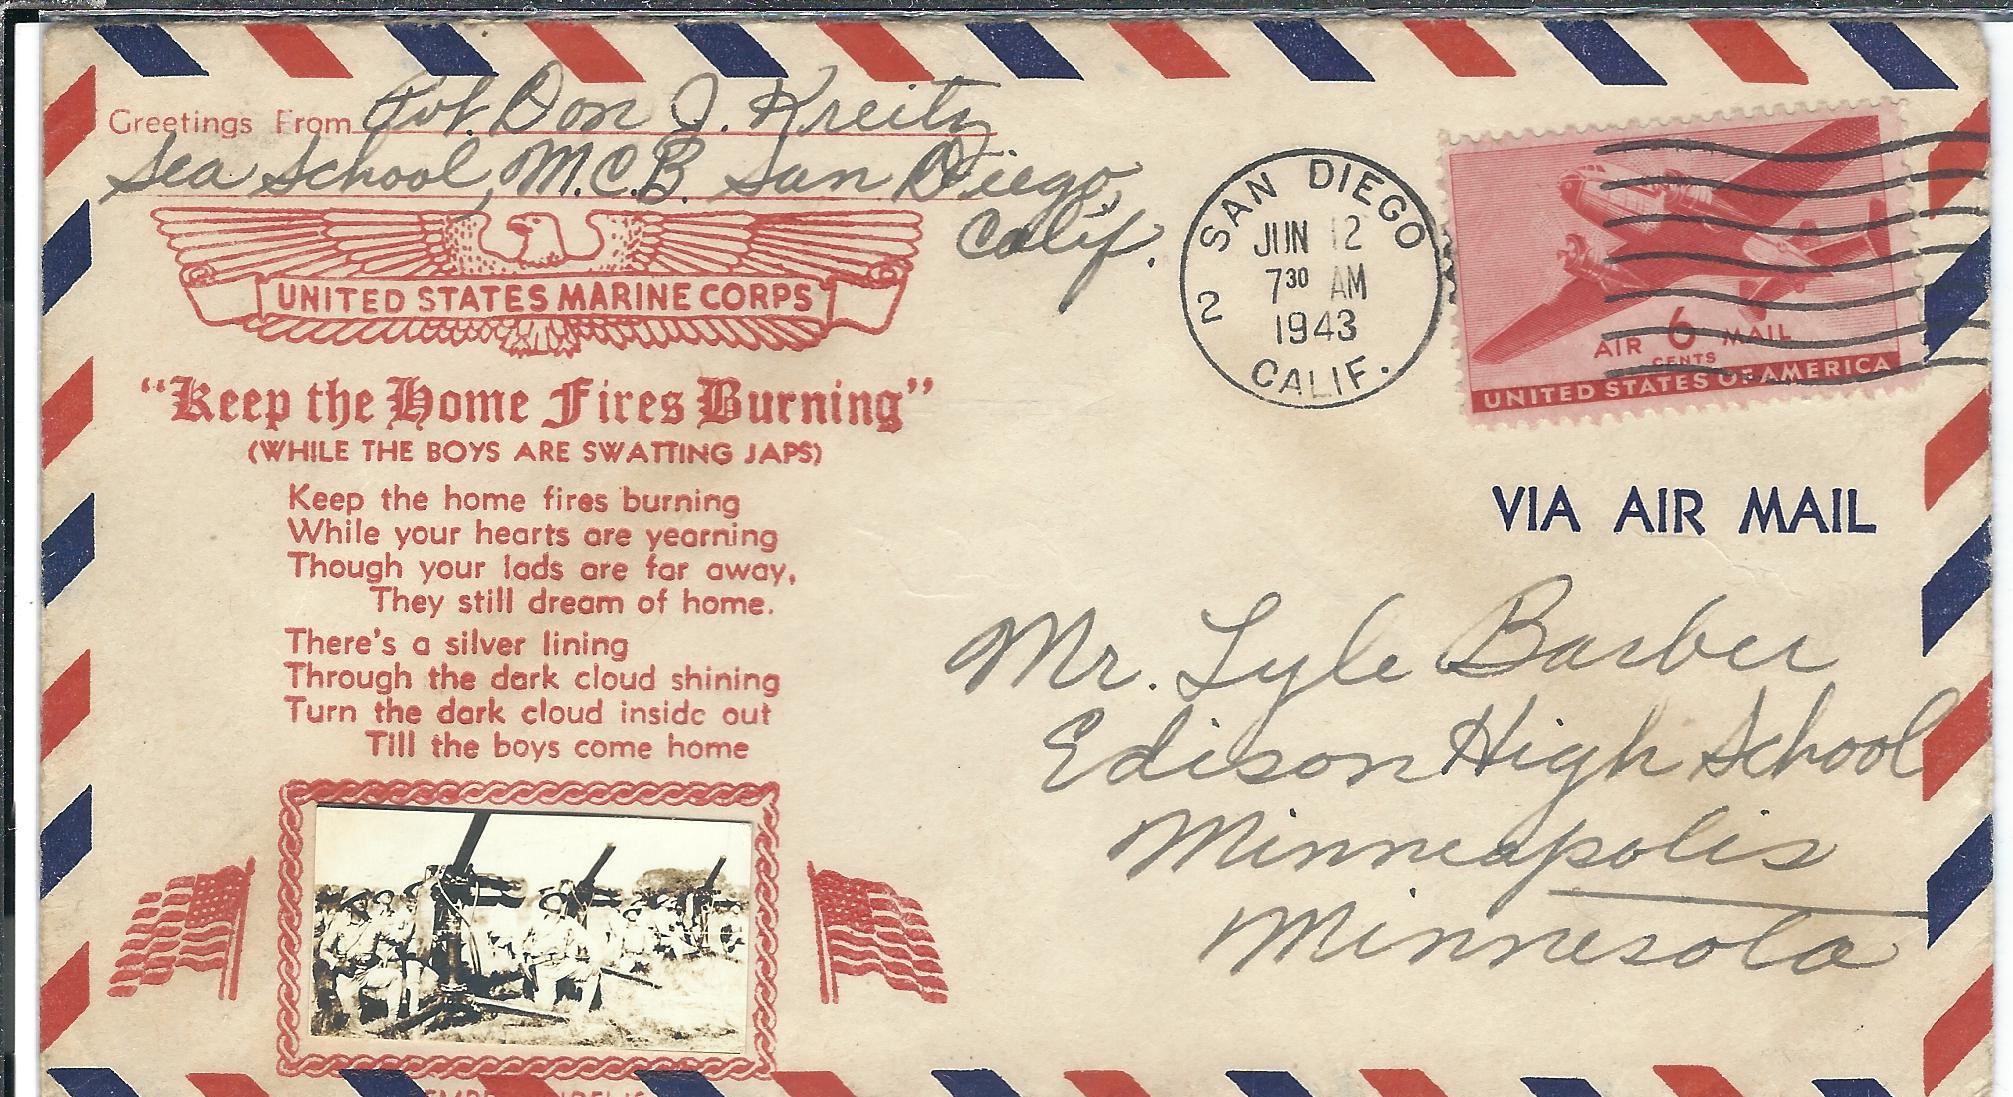 Greetings From Pvt. Don J. Kreitz
Sea School, M.C.B. San Diego,
Calif.
UNITED STATES MARINE CORPS
"Keep the Home Fires Burning"
(WHILE THE BOYS ARE SWATTING JAPS)
Keep the home fires burning
While your hearts are yearning
Though your lads are far away,
They still dream of home.
There's a silver lining
Through the dark cloud shining
Turn the dark cloud inside out
Till the boys come home
SAN DIEGO
JUN 12
7 30 AM
1943
2
CALIF.
AIR 6 MAIL
CENTS
UNITED STATES OF AMERICA
VIA AIR MAIL
Mr. Lyle Barber
Edison High School
Minneapolis
Minnesota